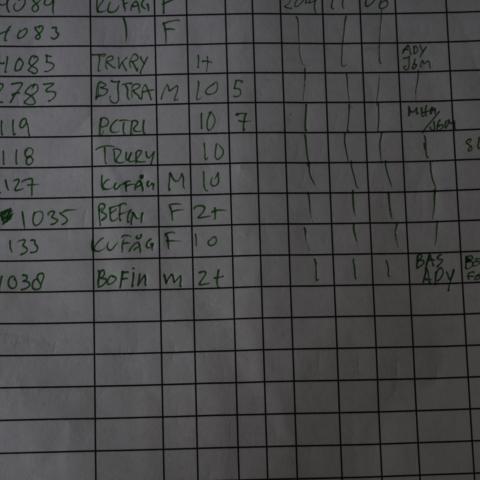 4084 KUFÅG F 2014 11 06
4083 | F | | |
4085 TRKRY 1+ | | | ADY JBM
2783 BJTRA M 10 5 | | | |
119 PCTRI 10 7 | | | MHA /JBM
118 TRKRY 10 | | | |
127 KUFÅG M 10 | | | |
1035 BEFIN F 2+ | | | |
133 KUFÅG F 10 | | | |
1038 BOFIN M 2+ | | | BAS ADY